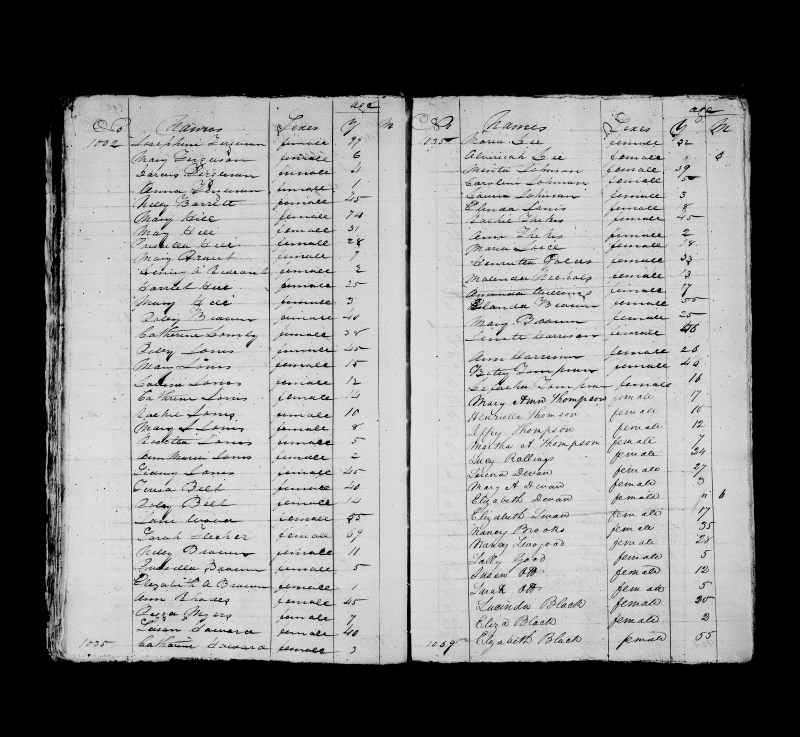 age
No Names Sexes Y M
1002 Josephine Ferguson female
Mary Ferguson female 6
Ferguson female 4
Anna Ferguson female 1
Nelly Barrett female 45
Mary Hill female 74
May Hill female 31
Priscilla Hill female 28
Mary Bryant female 9
female 2
Harriet Hill female 25
Mary Hill female 3
Dolly Brown female 40
Catherine female 38
Dolly Jones female 45
Mary Jones female 15
Louisa Jones female 12
Catherine Jones female 14
Rachel Jones female 10
Mary J Jones female 8
Rosetta Jones female 5
Ann Maria Jones female 2
Jones female 45
Teresa Belt female 20
Dolly Belt female 14
Jane female 55
Sarah female 69
Nelly Brown female 11
Priscilla Brown female 5
Elizabeth A Brown female 1
Ann Rhodes female 45
Myers female 7
Susan Howard female 40
1035 Catherine Howard female 3
age
No Names Sexes Y M
1035 Maria Lee female 32
Lee female 8
Minta Johnson female 39
Caroline Johnson female 15
Laura Johnson female 3
Elenda Jones female 8
female 45
Ann female 2
Maria female 18
Henrietta female 33
Matilda Nichols female 13
Amanda female 17
Elenda Brown female 55
Mary Brown female 25
Harrison female 46
Ann Harrison female 26
Betsy Tompson female 40
Tompson female 16
Mary Ann Thompson female 17
Henrietta Thomson female 10
Effry Thompson female 12
Martha A Thompson female 7
Lucy Rollings female 24
Devan female 27
Mary A Devan female 3
Elizabeth Devan female " 6
Elizabeth Swan female 17
Nancy Brooks female 35
female 28
Sally Good female 5
Susan Ott female 12
Sarah Ott female 5
Lucinda Black female 20
Eliza Black female 2
1069 Elizabeth Black female 55